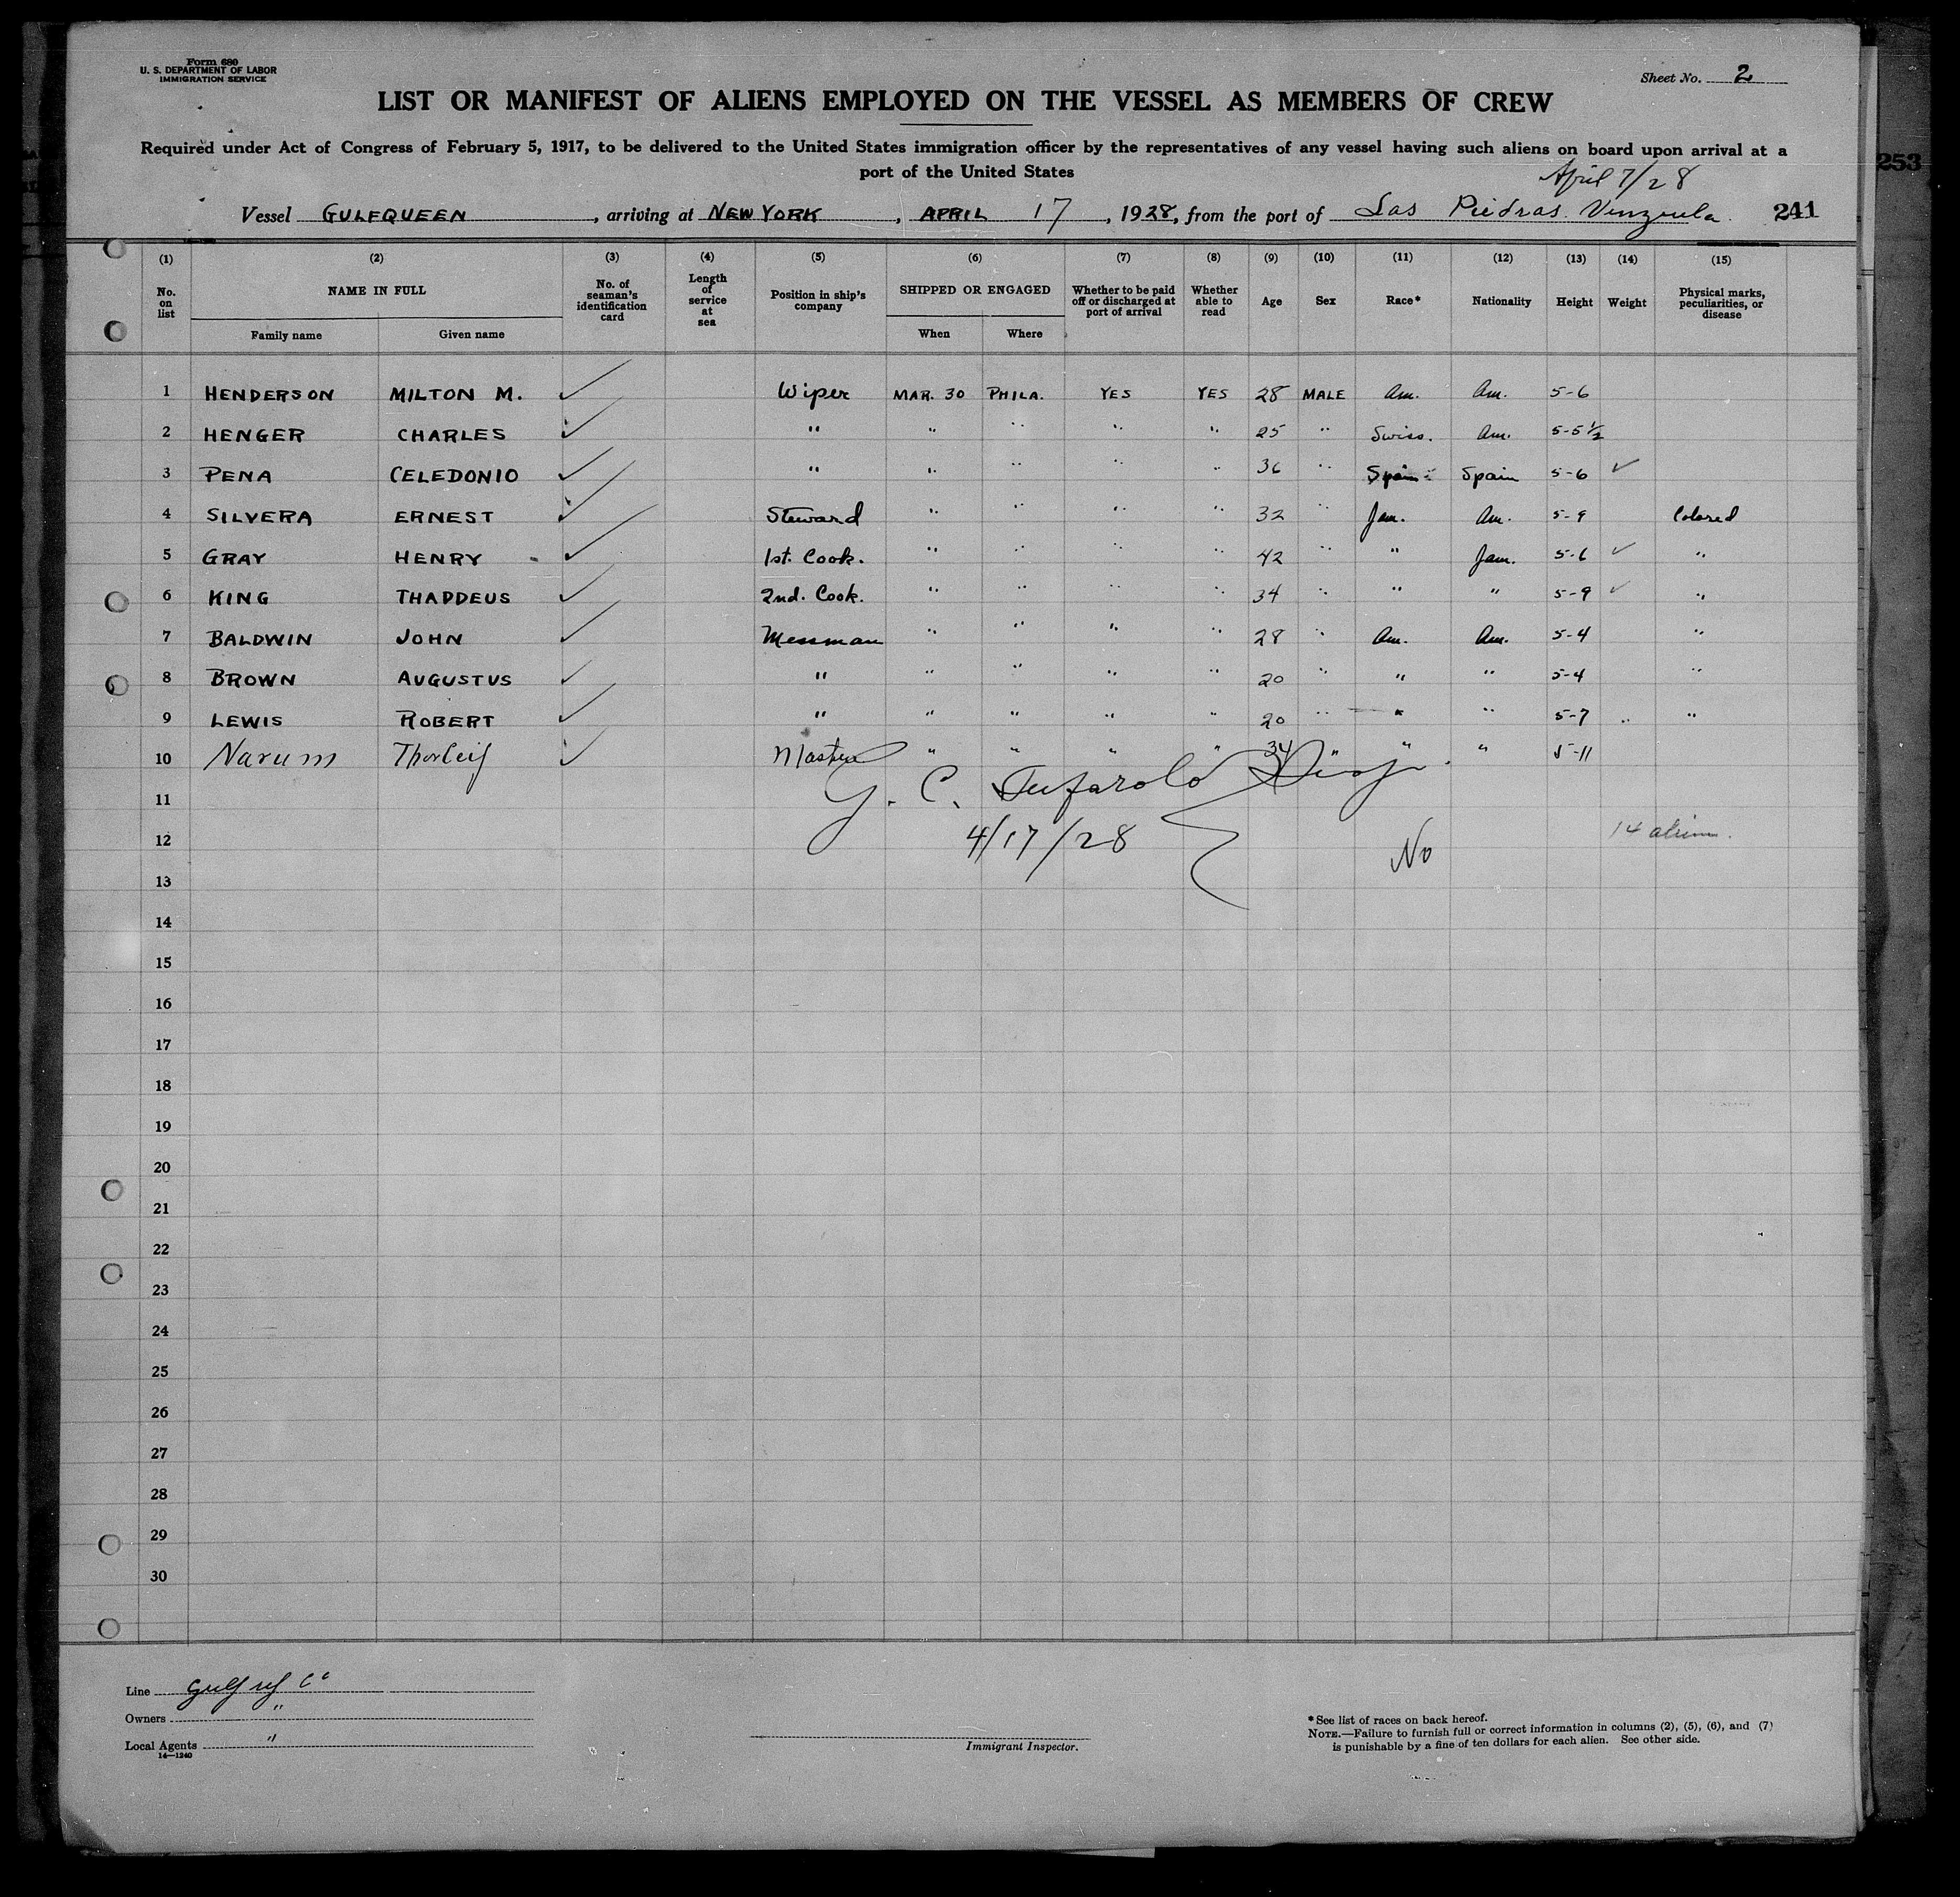 Form 680
U. S. DEPARTMENT OF LABOR
IMMIGRATION SERVICE
Sheet No. 2
LIST OR MANIFEST OF ALIENS EMPLOYED ON THE VESSEL AS MEMBERS OF CREW
Required under Act of Congress of February 5, 1917, to be delivered to the United States immigration officer by the representatives of any vessel having such aliens on board upon arrival at a
port of the United States
April 7/28
253
Vessel GULFQUEEN, arriving at NEW YORK, APRIL 17, 1928, from the port of Las Piedras. Venzuela. 241
(1) (2) (3) (4) (5) (6) (7) (8) (9) (10) (11) (12) (13) (14) (15)
No. on list NAME IN FULL No. of seaman's identification card Length of service at sea Position in ship's company SHIPPED OR ENGAGED Whether to be paid off or discharged at port of arrival Whether able to read Age Sex Race* Nationality Height Weight Physical marks, peculiarities, or disease
Family name Given name When Where
1 HENDERSON MILTON M. ✓ Wiper MAR. 30 PHILA. YES YES 28 MALE Am. Am. 5-6
2 HENGER CHARLES ✓ " " " " " 25 " Swiss. Am. 5-5½
3 PENA CELEDONIO ✓ " " " " " 36 " Spain Spain 5-6 ✓
4 SILVERA ERNEST ✓ Steward " " " " 32 " Jam. Am. 5-9 Colored
5 GRAY HENRY ✓ 1st. Cook. " " " " 42 " " Jam. 5-6 ✓ "
6 KING THADDEUS ✓ 2nd. Cook. " " " " 34 " " " 5-9 ✓ "
7 BALDWIN JOHN ✓ Messman " " " " 28 " Am. Am. 5-4 "
8 BROWN AUGUSTUS ✓ " " " " " 20 " " " 5-4 "
9 LEWIS ROBERT ✓ " " " " " 20 " " " 5-7 " "
10 Narum Thorleif ✓ Master " " " " 34 " " " 5-11
11
12 4/17/28 No 14 aliens.
13
14
15
16
17
18
19
20
21
22
23
24
25
26
27
28
29
30
Line Gulf ref Co
Owners "
Local Agents "
14—1240
Immigrant Inspector.
*See list of races on back hereof.
NOTE.—Failure to furnish full or correct information in columns (2), (5), (6), and (7)
is punishable by a fine of ten dollars for each alien. See other side.